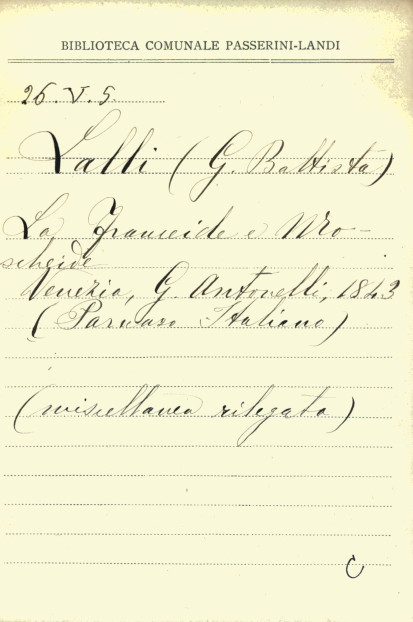 BIBLIOTECA COMUNALE PASSERINI-LANDI
26.V.5.
Lalli (G. Battista)
La Franceide e Mo-
scheide
Venezia, G. Antonelli, 1843
(Parnaso Italiano)
(miscellanea rilegata)
C